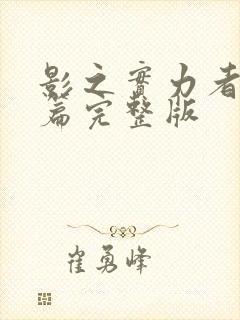 影之實力者
篇完整版
崔勇峰